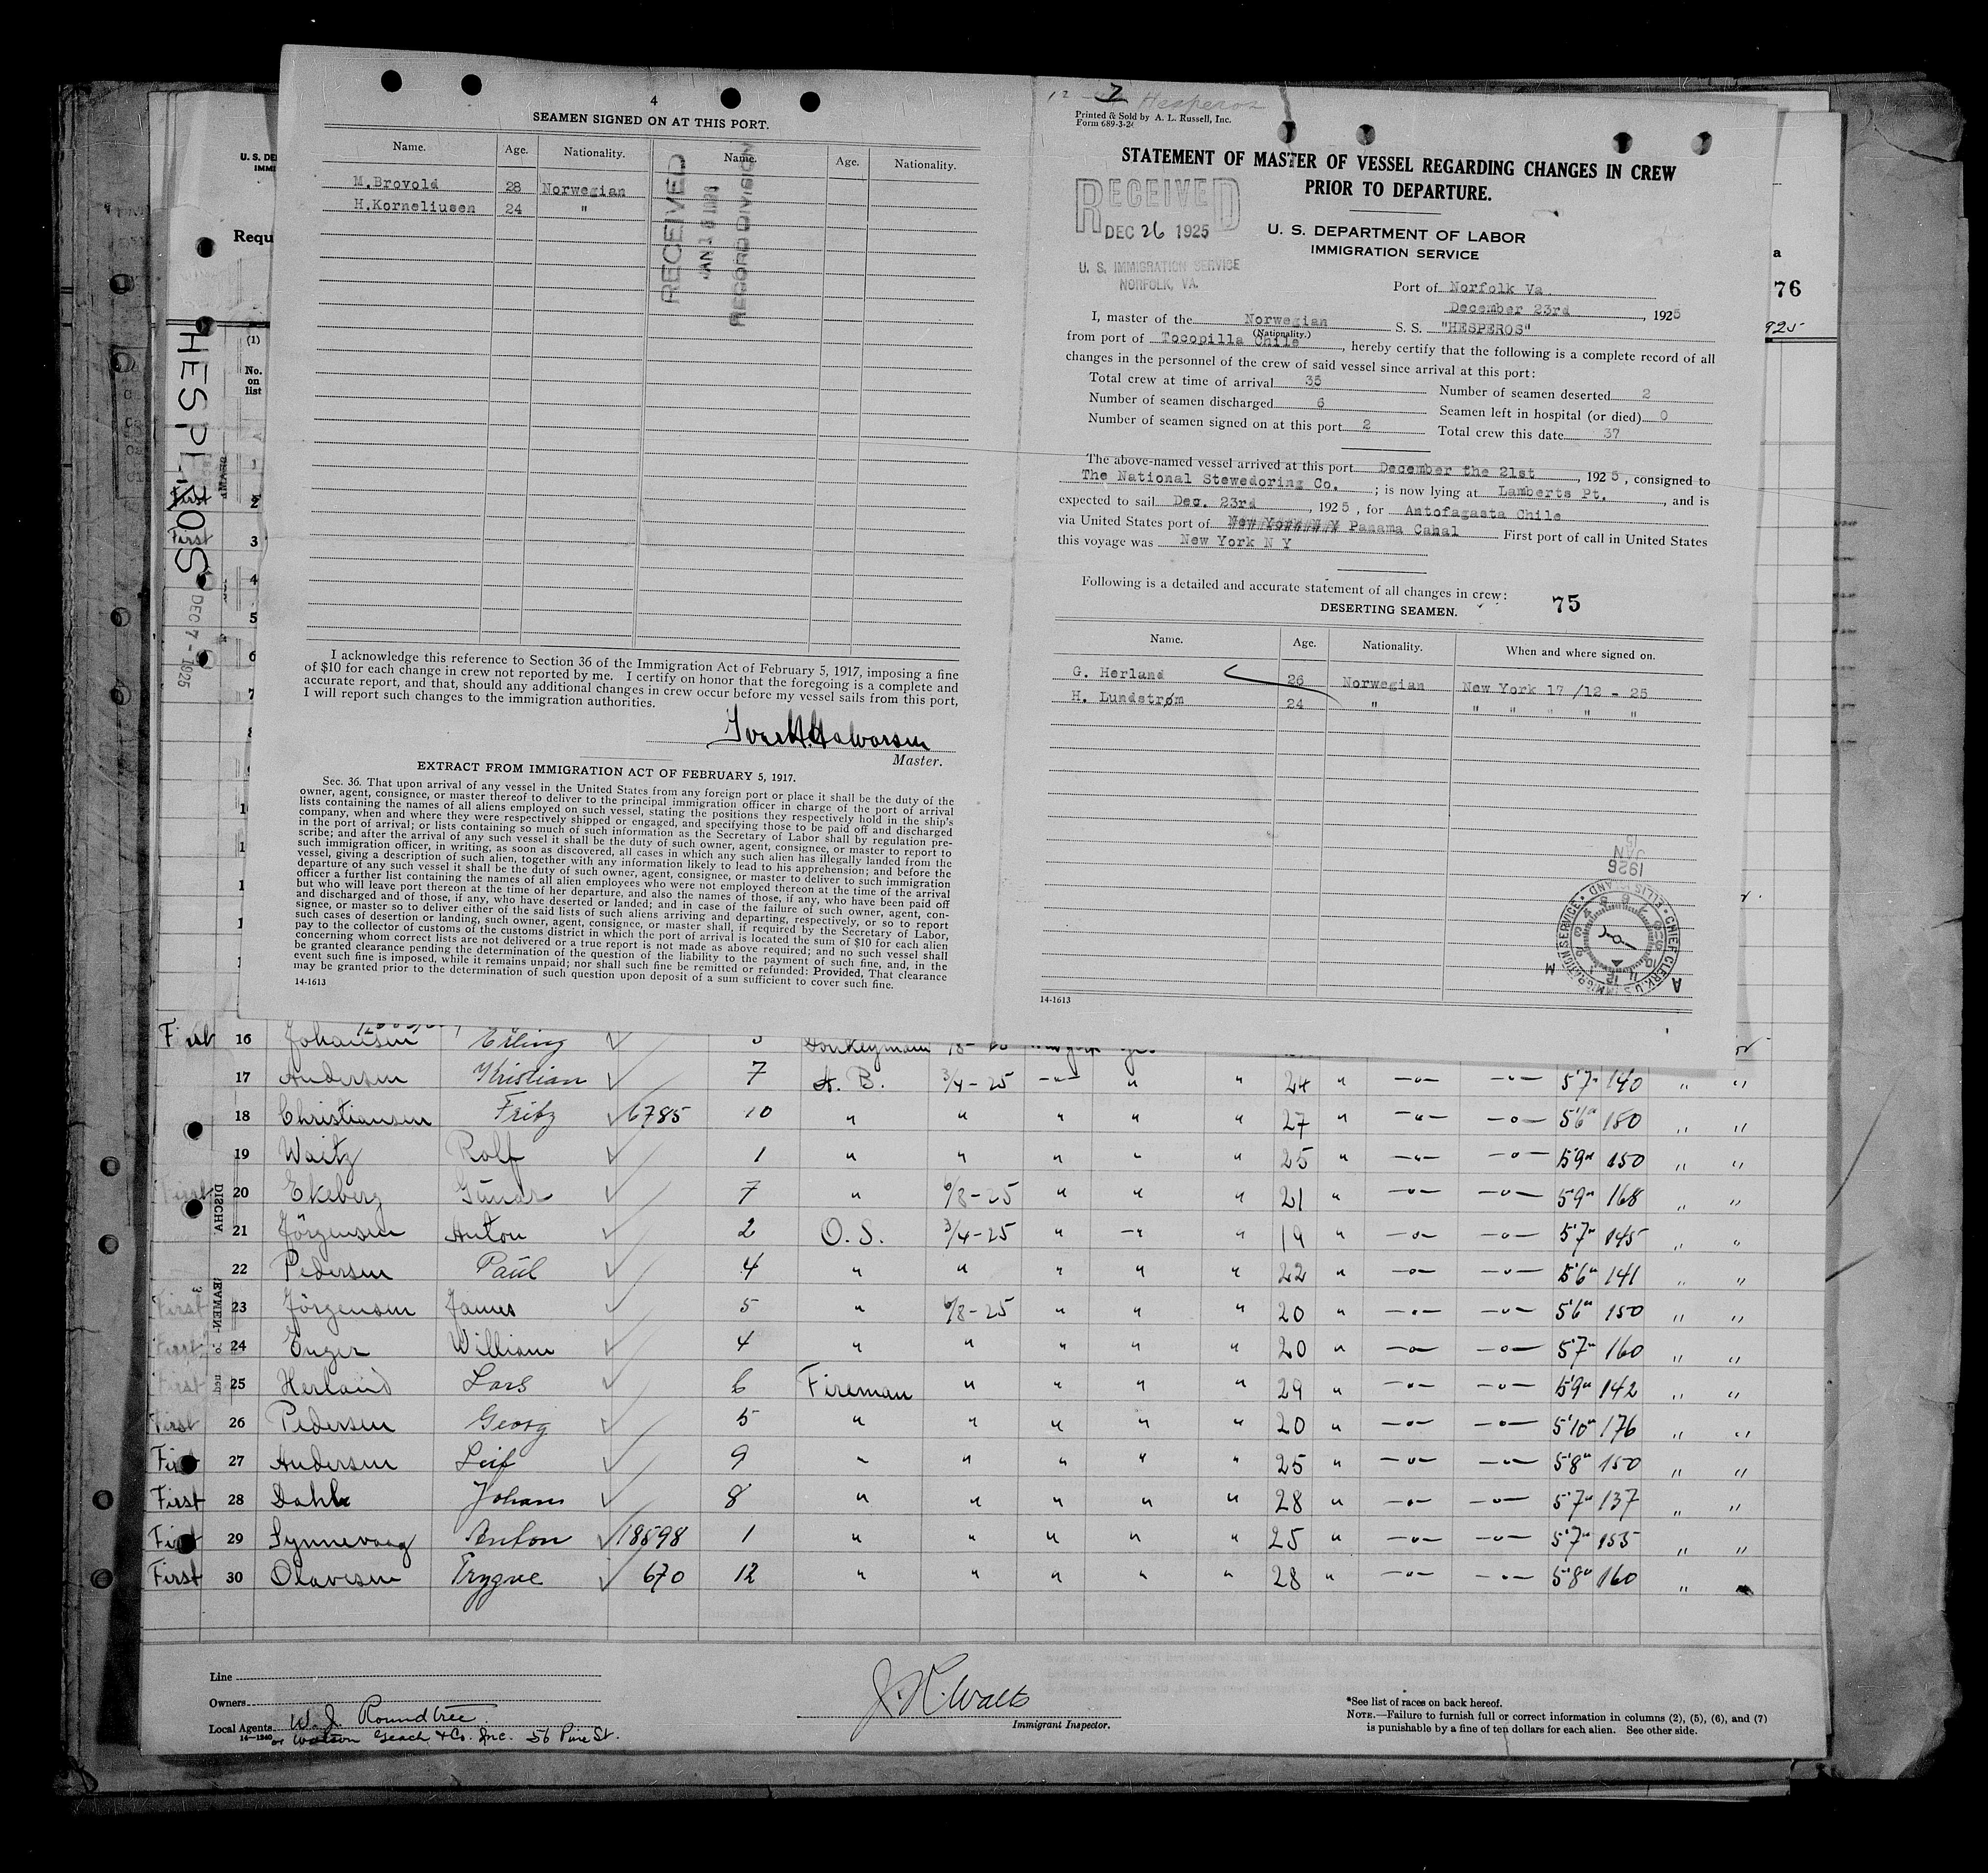 4
SEAMEN SIGNED ON AT THIS PORT.
Name. Age. Nationality. Name. Age. Nationality.
M.Brovold 28 Norwegian
H.Korneliusen 24 "
RECEIVED
RECORD DIVISION
I acknowledge this reference to Section 36 of the Immigration Act of February 5, 1917, imposing a fine
of $10 for each change in crew not reported by me. I certify on honor that the foregoing is a complete and
accurate report, and that, should any additional changes in crew occur before my vessel sails from this port,
I will report such changes to the immigration authorities.
Master.
EXTRACT FROM IMMIGRATION ACT OF FEBRUARY 5, 1917.
Sec. 36. That upon arrival of any vessel in the United States from any foreign port or place it shall be the duty of the
owner, agent, consignee, or master thereof to deliver to the principal immigration officer in charge of the port of arrival
lists containing the names of all aliens employed on such vessel, stating the positions they respectively hold in the ship's
company, when and where they were respectively shipped or engaged, and specifying those to be paid off and discharged
in the port of arrival; or lists containing so much of such information as the Secretary of Labor shall by regulation pre-
scribe; and after the arrival of any such vessel it shall be the duty of such owner, agent, consignee, or master to report to
such immigration officer, in writing, as soon as discovered, all cases in which any such alien has illegally landed from the
vessel, giving a description of such alien, together with any information likely to lead to his apprehension; and before the
departure of any such vessel it shall be the duty of such owner, agent, consignee, or master to deliver to such immigration
officer a further list containing the names of all alien employees who were not employed thereon at the time of the arrival
but who will leave port thereon at the time of her departure, and also the names of those, if any, who have been paid off
and discharged and of those, if any, who have deserted or landed; and in case of the failure of such owner, agent, con-
signee, or master so to deliver either of the said lists of such aliens arriving and departing, respectively, or so to report
such cases of desertion or landing, such owner, agent, consignee, or master shall, if required by the Secretary of Labor,
pay to the collector of customs of the customs district in which the port of arrival is located the sum of $10 for each alien
concerning whom correct lists are not delivered or a true report is not made as above required; and no such vessel shall
be granted clearance pending the determination of the question of the liability to the payment of such fine, and, in the
event such fine is imposed, while it remains unpaid; nor shall such fine be remitted or refunded: Provided, That clearance
may be granted prior to the determination of such question upon deposit of a sum sufficient to cover such fine.
14-1613
Hesperos
Printed & Sold by A. L. Russell, Inc.
Form 689-3-24
STATEMENT OF MASTER OF VESSEL REGARDING CHANGES IN CREW
PRIOR TO DEPARTURE.
RECEIVED
DEC 26 1925
U. S. IMMIGRATION SERVICE
NORFOLK, VA.
U. S. DEPARTMENT OF LABOR
IMMIGRATION SERVICE
Port of Norfolk Va
December 23rd, 1925
I, master of the Norwegian S. S. "HESPEROS"
(Nationality.)
from port of Tocopilla Chile, hereby certify that the following is a complete record of all
changes in the personnel of the crew of said vessel since arrival at this port:
Total crew at time of arrival 35 Number of seamen deserted 2
Number of seamen discharged 6 Seamen left in hospital (or died) 0
Number of seamen signed on at this port 2 Total crew this date 37
The above-named vessel arrived at this port December the 21st, 1925, consigned to
The National Stewedoring Co.; is now lying at Lamberts Pt., and is
expected to sail Dec. 23rd, 1925, for Antofagasta Chile
via United States port of New York N Y Panama Cahal First port of call in United States
this voyage was New York N Y
Following is a detailed and accurate statement of all changes in crew:
DESERTING SEAMEN. 75
Name. Age. Nationality. When and where signed on.
G. Herland 26 Norwegian New York 17 /12 - 25
H. Lundstrøm 24 " " " " " "
1926
JAN
15
CHIEF CLERK U. S. IMMIGRATION SERVICE ELLIS ISLAND
14-1613
a
76
925
Requ
(1)
No.
on
list
HESPEROS
DEC 7 - 1925
First 2
First 3
4
5
6
7
First 16 Johansen Erling Donkeyman
17 Andersen Kristian 7 A. B. 3/4-25 -"- " " 24 " -"- -"- 5'7" 140 " "
18 Christiansen Fritz 6785 10 " " " " " 27 " -"- -"- 5'6" 180 " "
19 Waitz Rolf 1 " " " " " 25 " -"- -"- 5'9" 150 " "
First 20 Ekeberg Gunar 7 " 6/8-25 " " " 21 " -"- -"- 5'9" 168 " "
21 Jörgensen Anton 2 O. S. 3/4-25 " -" " 19 " -"- -"- 5'7" 145 " "
22 Pedersen Paul 4 " " " " " 22 " -"- -"- 5'6" 141 " "
First 23 Jörgensen James 5 " 6/8-25 " " " 20 " -"- -"- 5'6" 150 " "
First 24 Enger William 4 " " " " " 20 " -"- -"- 5'7" 160 " "
First 25 Herland Lars 6 Fireman " " " " 29 " -"- -"- 5'9" 142 " "
First 26 Pedersen Georg 5 " " " " " 20 " -"- -"- 5'10" 176 " "
First 27 Andersen Leif 9 " " " " " 25 " -"- -"- 5'8" 150 " "
First 28 Dahl Johan 8 " " " " " 28 " -"- -"- 5'7" 137 " "
First 29 Synnevaag Anton 18598 1 " " " " " 25 " -"- -"- 5'7" 155 " "
First 30 Olavesen Trygve 670 12 " " " " " 28 " -"- -"- 5'8" 160 "
Line
Owners
Local Agents W. J. Roundtree
14-1240 or Watson Geach & Co. Inc. 56 Pine St.
Immigrant Inspector.
*See list of races on back hereof.
NOTE.—Failure to furnish full or correct information in columns (2), (5), (6), and (7)
is punishable by a fine of ten dollars for each alien. See other side.